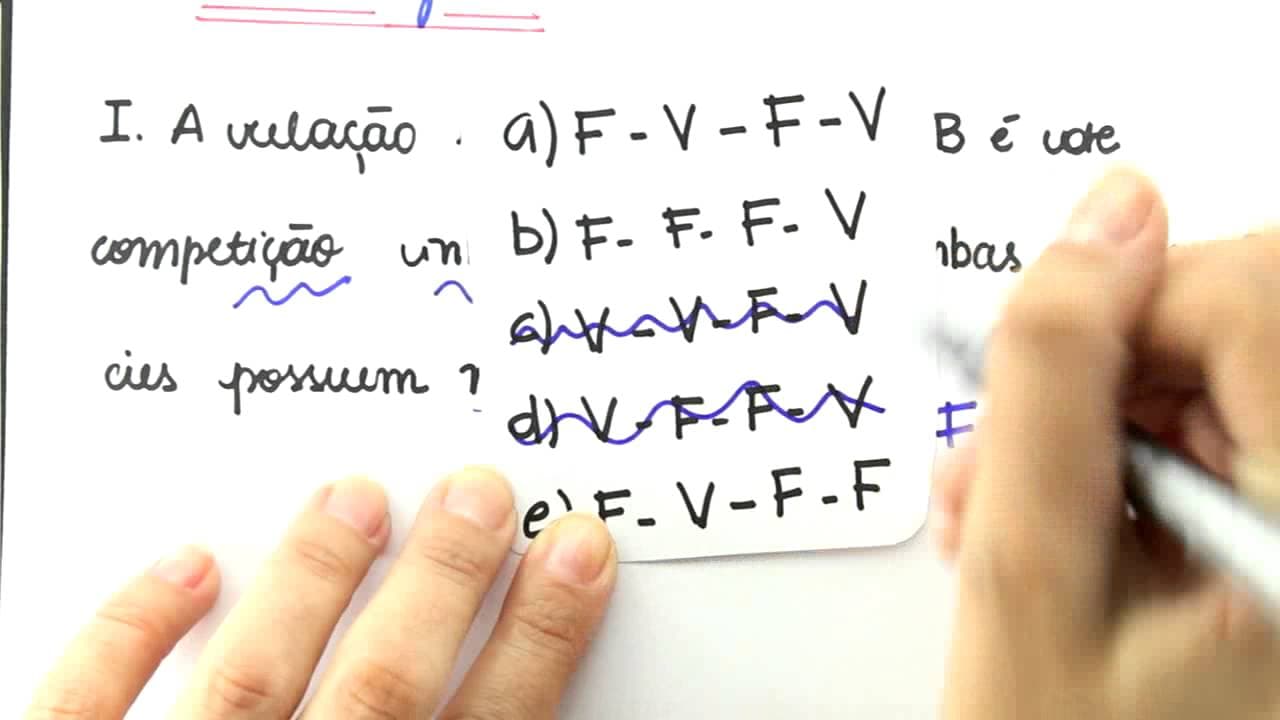 I. A relação
B é
competição
cies possuem ?
a) F - V - F - V
b) F - F - F - V
c) V - V - F - V
d) V - F - F - V
e) F - V - F - F
F